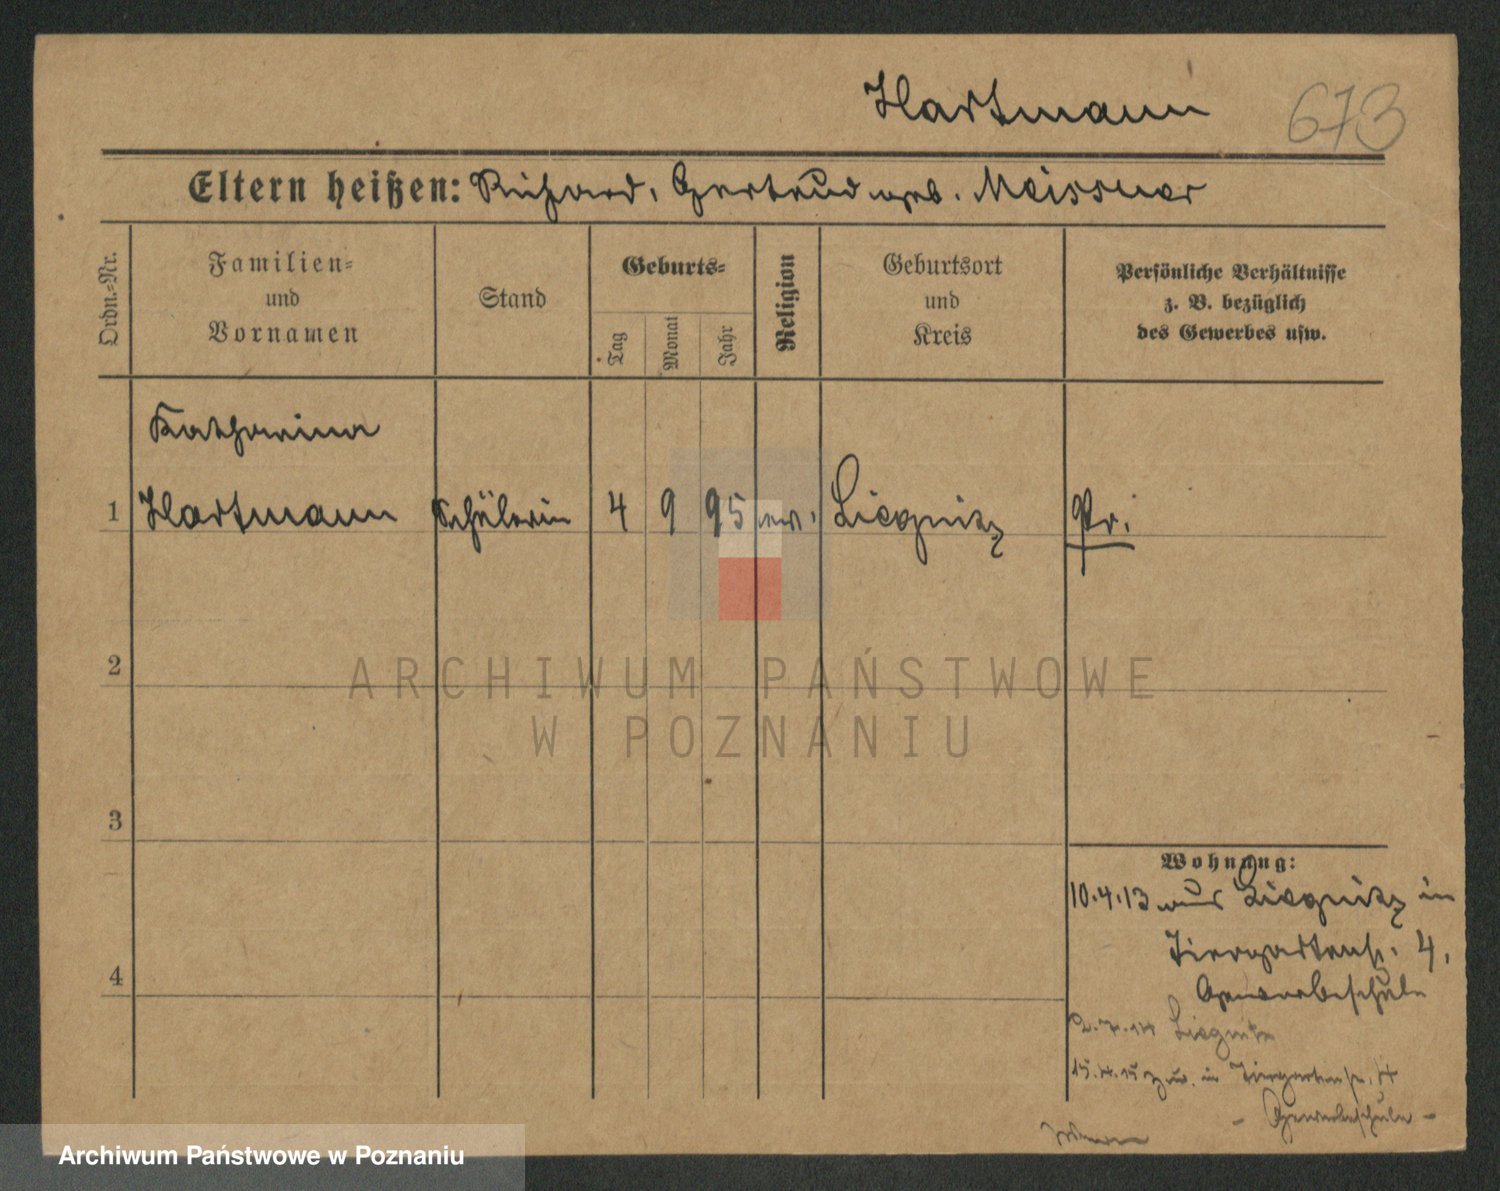 Hartmann
673
Eltern heißen: Richard, Gertrud geb. Meissner
Ordn.-Nr.
Familien-
und
Vornamen
Stand
Geburts-
Tag
Monat
Jahr
Religion
Geburtsort
und
Kreis
Persönliche Verhältnisse
z. B. bezüglich
des Gewerbes usw.
Katharina
1 Hartmann Schülerin 4 9 95 ev. Liegnitz Pr.
2
3
4
Wohnung:
10.4.13 aus Liegnitz in
Tiergartenstr. 4,
Gewerbeschule
Liegnitz
in Tiergartenstr. 4
- Gewerbeschule -
ARCHIWUM PAŃSTWOWE
W POZNANIU
Archiwum Państwowe w Poznaniu